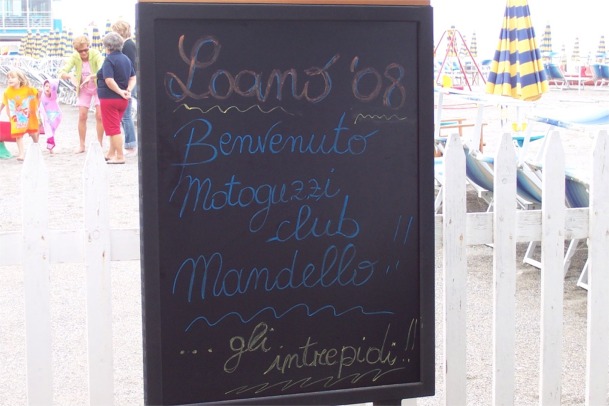 Loano '08
Benvenuto
Motoguzzi
club
Mandello!!
... gli
intrepidi!!!